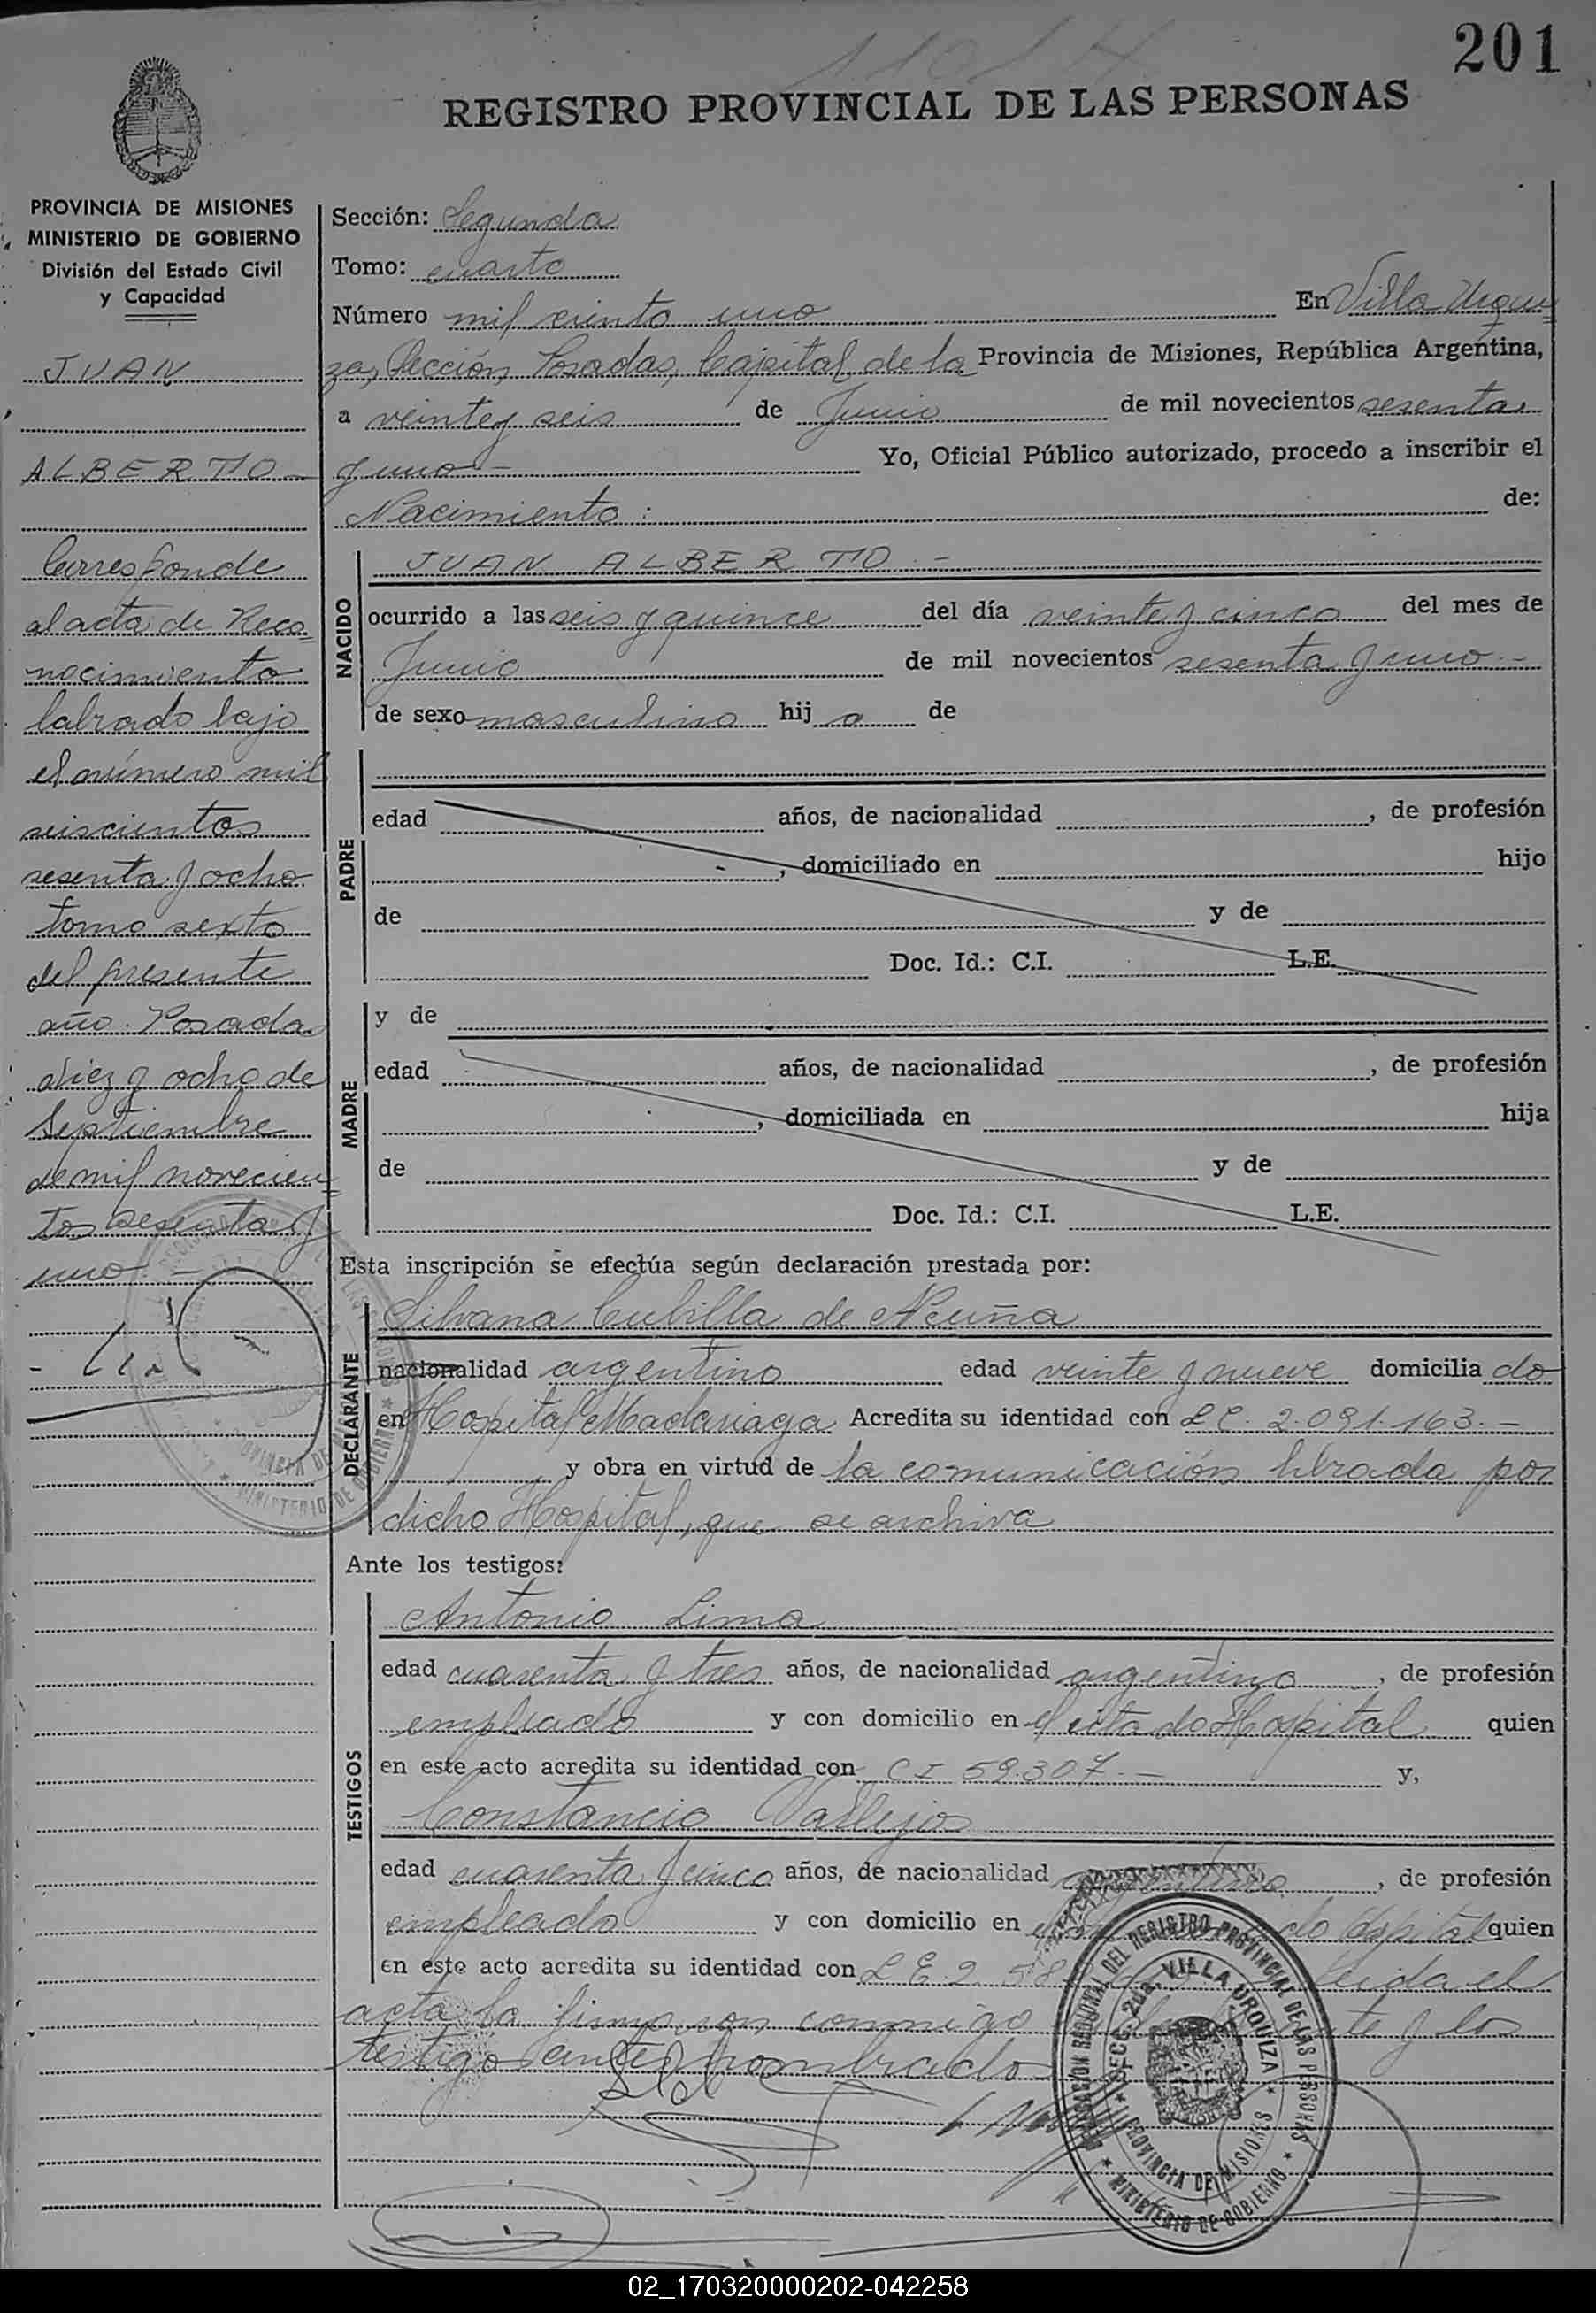 201
REGISTRO PROVINCIAL DE LAS PERSONAS
PROVINCIA DE MISIONES
MINISTERIO DE GOBIERNO
División del Estado Civil
y Capacidad
JUAN
ALBERTO
Corresponde
al acta de Reco=
nocimiento
labrado bajo
el número mil
seiscientos
sesenta y ocho
tomo sexto
del presente
año. Posadas
diez y ocho de
Septiembre
de mil novecien=
tos sesenta y
uno. -
Sección: Segunda
Tomo: cuarto
Número mil ciento uno En Villa Urqui=
za, Sección, Posadas, Capital de la Provincia de Misiones, República Argentina,
a veinte y seis de Junio de mil novecientos sesenta
y uno - Yo, Oficial Público autorizado, procedo a inscribir el
Nacimiento : de:
NACIDO
JUAN ALBERTO. -
ocurrido a las seis y quince del día veinte y cinco del mes de
Junio de mil novecientos sesenta y uno -
de sexo masculino hij o de
PADRE
edad años, de nacionalidad , de profesión
, domiciliado en hijo
de y de
Doc. Id.: C.I. L.E.
MADRE
y de
edad años, de nacionalidad , de profesión
, domiciliada en hija
de y de
Doc. Id.: C.I. L.E.
Esta inscripción se efectúa según declaración prestada por:
DECLARANTE
Silvana Cubilla de Acuña
nacionalidad argentina edad veinte y nueve domicilia do
en Hospital Madariaga Acredita su identidad con L C. 2.091.163. -
y obra en virtud de la comunicación librada por
dicho Hospital, que se archiva
Ante los testigos:
TESTIGOS
Antonio Lima
edad cuarenta y tres años, de nacionalidad argentino , de profesión
empleado y con domicilio en el citado Hospital quien
en este acto acredita su identidad con C I 59.307. - y,
Constancio Vallejos
edad cuarenta y cinco años, de nacionalidad argentino , de profesión
empleado y con domicilio en do Hospital quien
en este acto acredita su identidad con L E 2. 58 Leida el
acta la firmaron conmigo y los
testigo antes nombrado
DELEGACION REGIONAL DEL REGISTRO PROVINCIAL DE LAS PERSONAS
SECC. 2da. VILLA URQUIZA
PROVINCIA DE MISIONES
MINISTERIO DE GOBIERNO
02_170320000202-042258